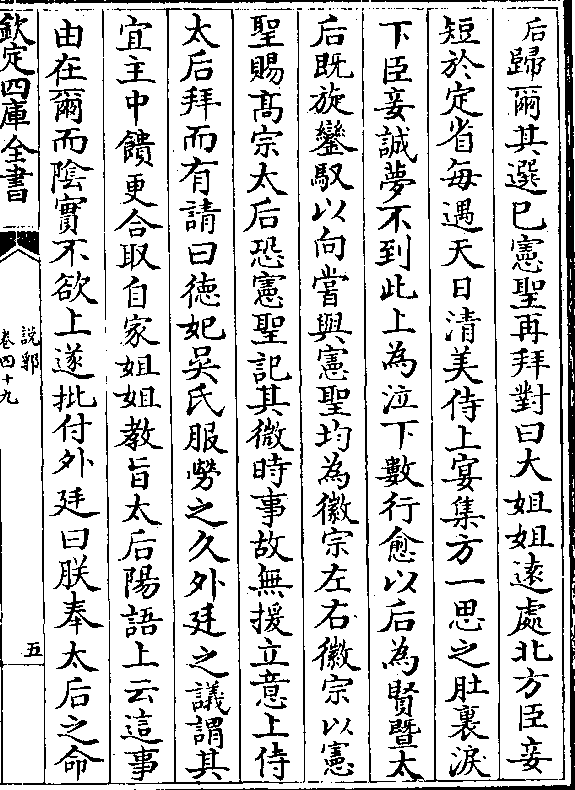 后歸爾其選已憲聖再拜對曰大姐姐逺處北方臣妾
短於定省每遇天日清美侍上宴集方一思之肚裏淚
下臣妾誠夢不到此上為泣下數行愈以后為賢暨太
后既旋鑾馭以向嘗與憲聖均為徽宗左右徽宗以憲
聖賜髙宗太后恐憲聖記其微時事故無援立意上侍
太后拜而有請曰徳妃吳氏服勞之久外廷之議謂其
宜主中饋更合取自家姐姐教旨太后陽語上云這事
由在爾而隂實不欲上遂批付外廷曰朕奉太后之命
欽定四庫全書
說郛
卷四十九
五